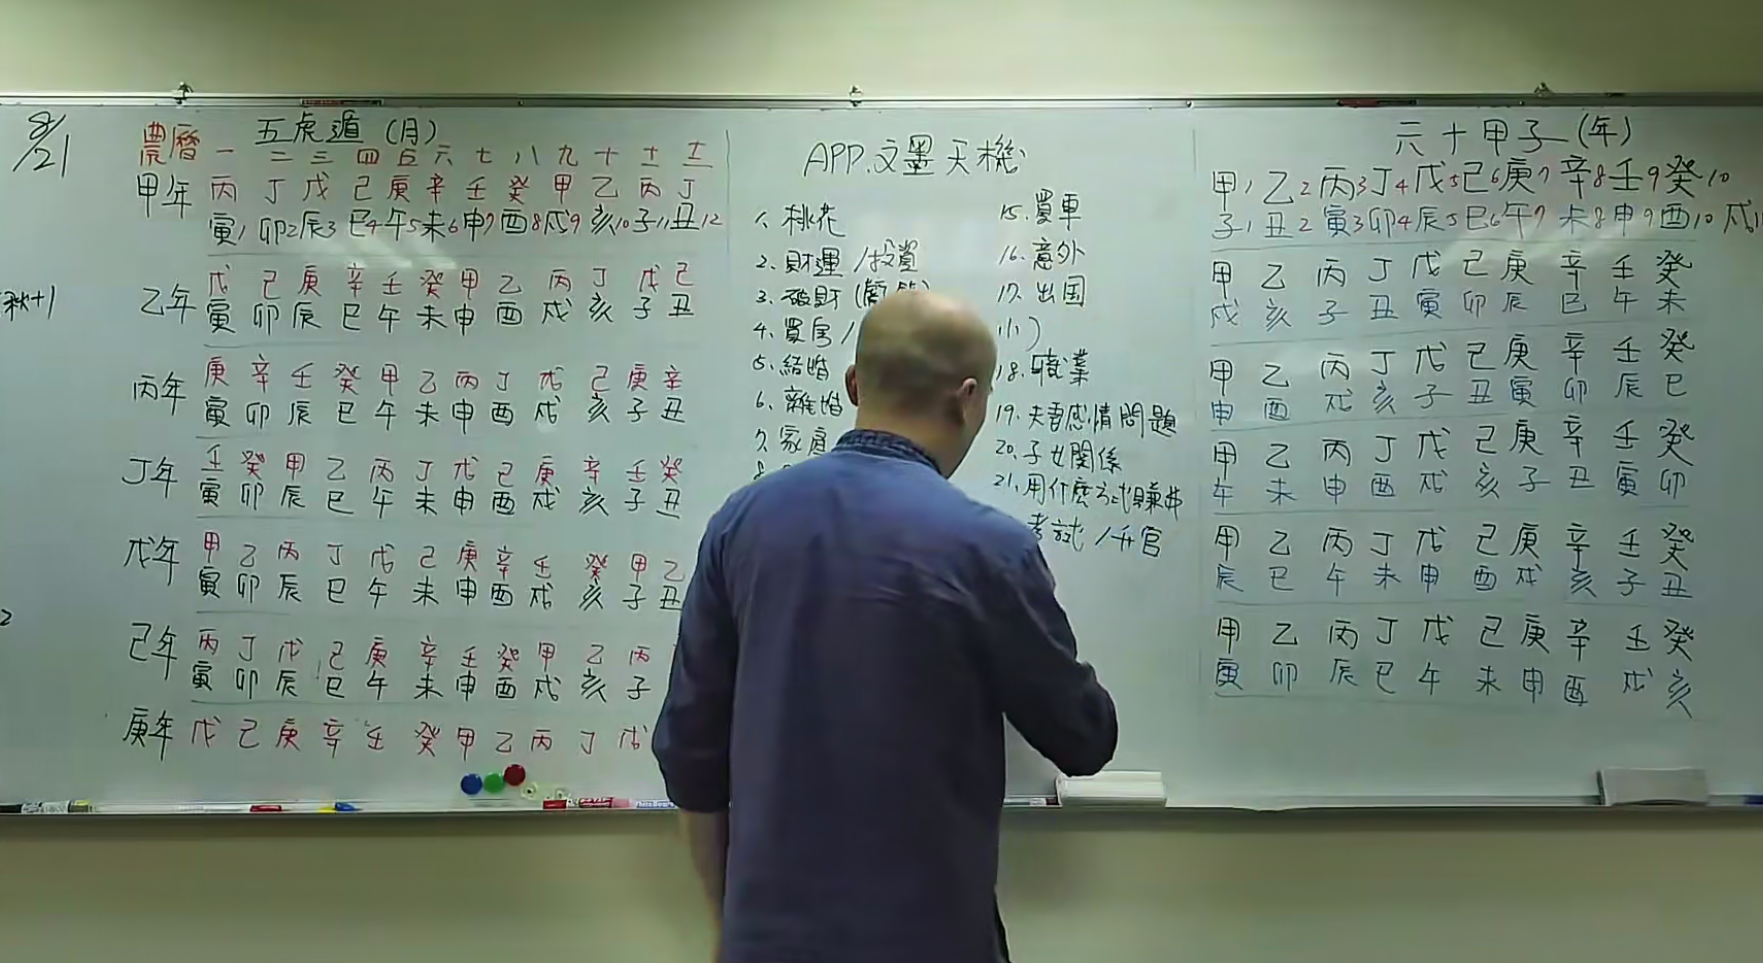 8/21
五虎遁(月)
農曆 一 二 三 四 五 六 七 八 九 十 十一 十二
甲年 丙 丁 戊 己 庚 辛 壬 癸 甲 乙 丙 丁
寅1 卯2 辰3 巳4 午5 未6 申7 酉8 戌9 亥10 子11 丑12
戊 己 庚 辛 壬 癸 甲 乙 丙 丁 戊 己
乙年 寅 卯 辰 巳 午 未 申 酉 戌 亥 子 丑
庚 辛 壬 癸 甲 乙 丙 丁 戊 己 庚 辛
丙年 寅 卯 辰 巳 午 未 申 酉 戌 亥 子 丑
壬 癸 甲 乙 丙 丁 戊 己 庚 辛 壬 癸
丁年 寅 卯 辰 巳 午 未 申 酉 戌 亥 子 丑
甲 乙 丙 丁 戊 己 庚 辛 壬 癸 甲 乙
戊年 寅 卯 辰 巳 午 未 申 酉 戌 亥 子 丑
丙 丁 戊 己 庚 辛 壬 癸 甲 乙 丙
己年 寅 卯 辰 巳 午 未 申 酉 戌 亥 子
庚年 戊 己 庚 辛 壬 癸 甲 乙 丙 丁 戊
APP.文墨天機
1. 桃花
2. 財運/投資
3. 破財(
4. 買房/
5. 結婚
6. 離婚
7. 家庭
15. 買車
16. 意外
17. 出国
18. 職業
19. 夫妻感情問題
20. 子女關係
21. 用什麼方式賺
考試/升官
六十甲子(年)
甲1 乙2 丙3 丁4 戊5 己6 庚7 辛8 壬9 癸10
子1 丑2 寅3 卯4 辰5 巳6 午7 未8 申9 酉10 戌
甲 乙 丙 丁 戊 己 庚 辛 壬 癸
戌 亥 子 丑 寅 卯 辰 巳 午 未
甲 乙 丙 丁 戊 己 庚 辛 壬 癸
申 酉 戌 亥 子 丑 寅 卯 辰 巳
甲 乙 丙 丁 戊 己 庚 辛 壬 癸
午 未 申 酉 戌 亥 子 丑 寅 卯
甲 乙 丙 丁 戊 己 庚 辛 壬 癸
辰 巳 午 未 申 酉 戌 亥 子 丑
甲 乙 丙 丁 戊 己 庚 辛 壬 癸
寅 卯 辰 巳 午 未 申 酉 戌 亥